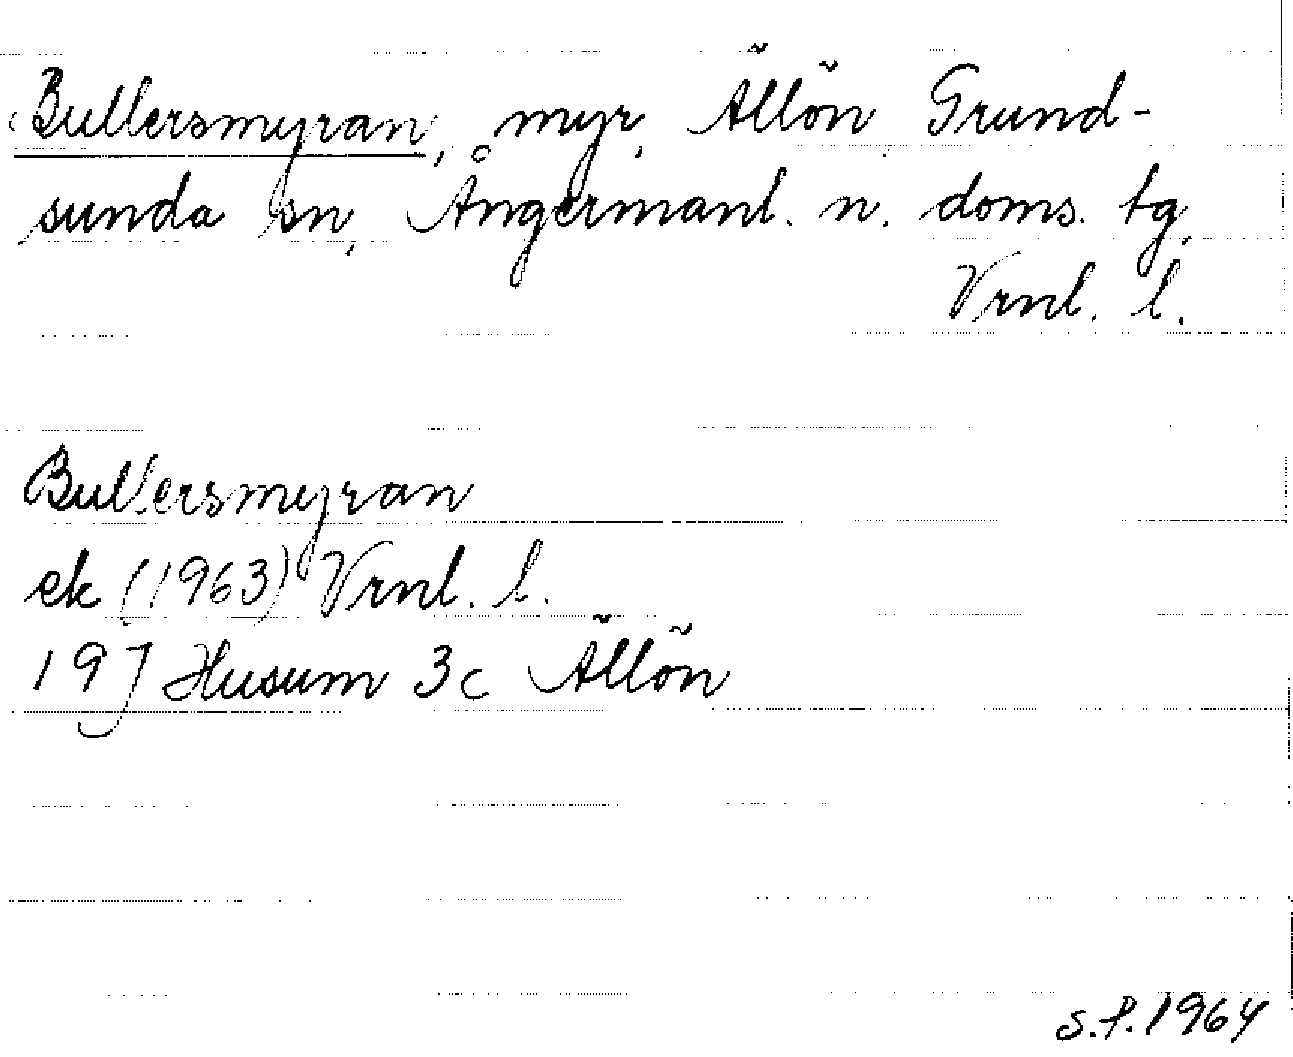 Bullersmyran, myr, Ällön Grund-
sunda sn, Ångermanl. n. doms. tg,
Vrnl. l.
Bullersmyran
ek (1963) Vrnl. l.
19J Husum 3c Ällön
S.P. 1964